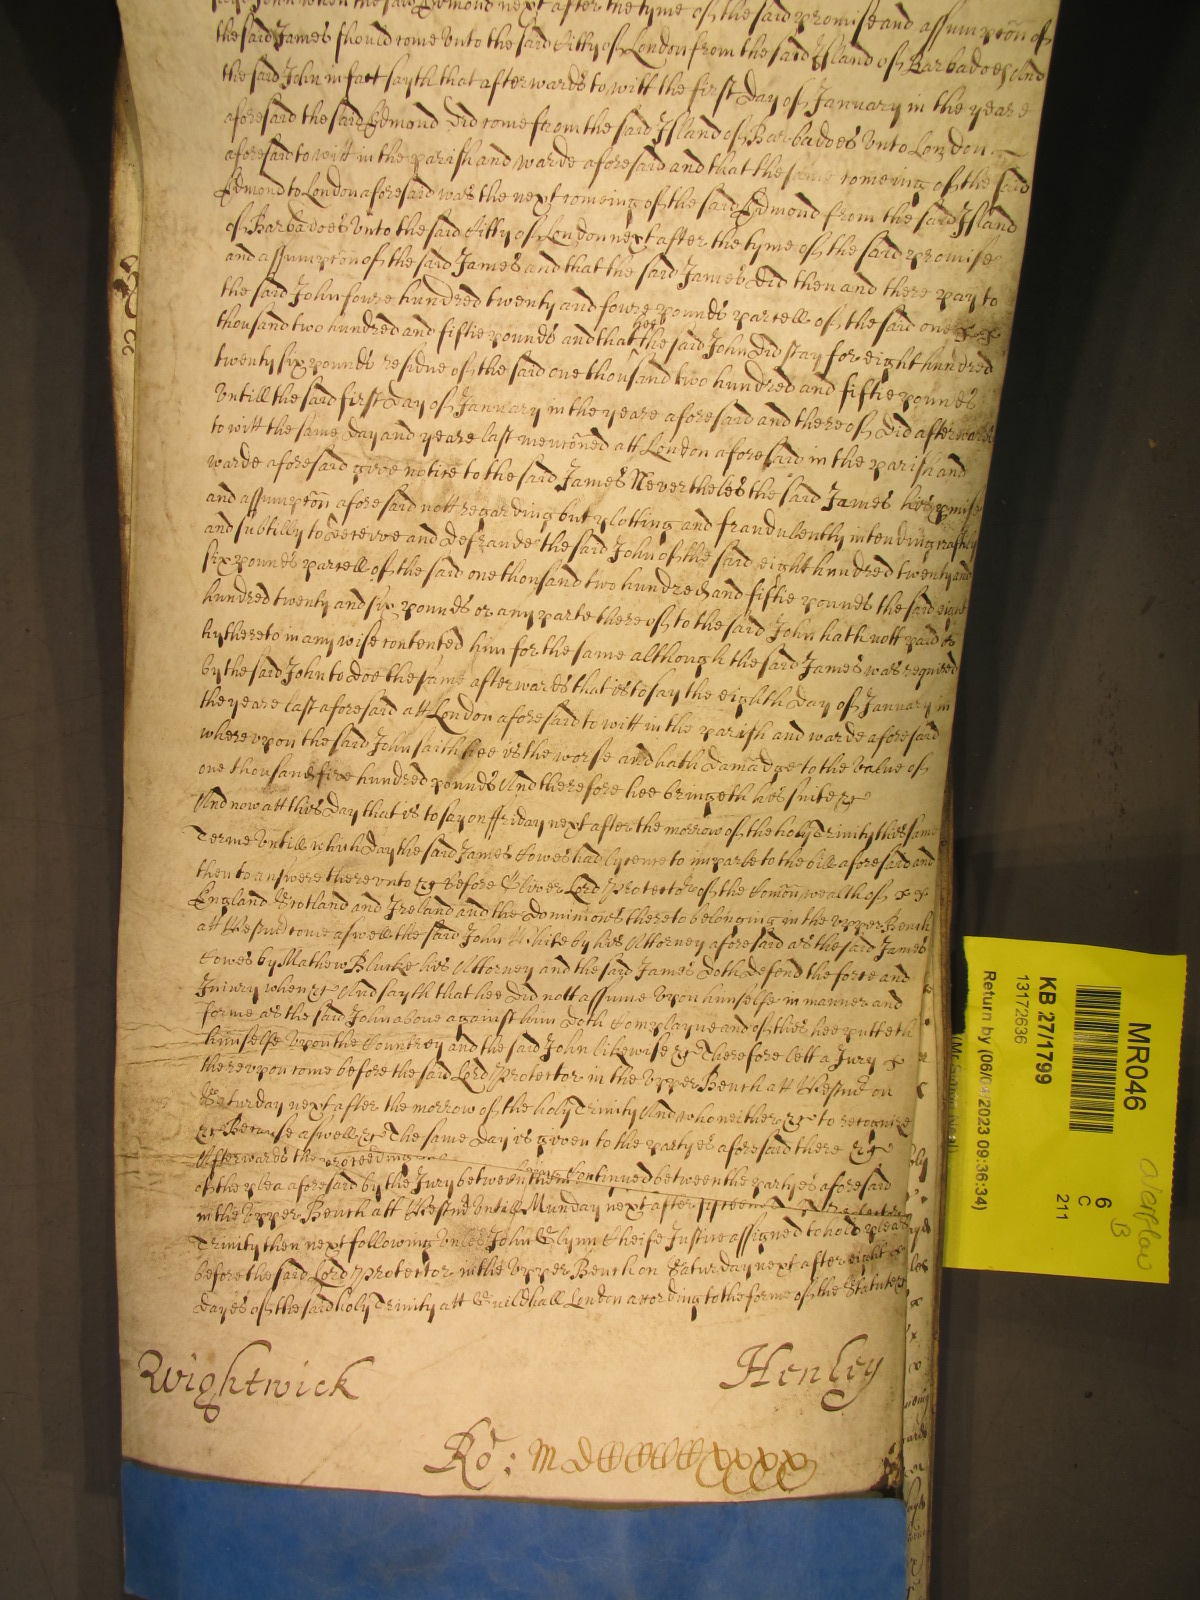 John when the said Edmond next after the tyme of the said promise and assumpcõn of
the said James should come unto the said Citty of London from the said Island of Barbadoes And
the said John in fact sayth that afterwards to witt the first day of January in the yeare
aforesaid the said Edmond did come from the said Island of Barbadoes unto London
aforesaid to witt in the parish and warde aforesaid and that the same comeing of the said
Edmond to London aforesaid was the next comeing of the said Edmond from the said Island
of Barbadoes unto the said Citty of London next after the tyme of the said promise
and assumpcon of the said James and that the said James did then and there pay to
the said John foure hundred twenty and foure pounds parcell of the said one x x
thousand two hundred and fiftie pounds and that hee the said John did stay for eight hundred
twenty six pounds residue of the said one thousand two hundred and fiftie pounds
untill the said first day of January in the yeare aforesaid and thereof did afterwards
to witt the same day and yeare last mencõned att London aforesaid in the parish and
warde aforesaid give notice to the said James Nevertheles the said James his pmise
and assumpcõn aforesaid nott regarding but plotting and fraudulently intending craftily
and subtilly to deceive and defraude the said John of the said eight hundred twenty and
six pounds parcell of the said one thousand two hundred and fiftie pounds the said eight
hundred twenty and six pounds or any parte thereof to the said John hath nott paid or
hitherto in any wise contented him for the same although the said James was required
by the said John to doe the same afterwards that is to say the eighth day of January in
the yeare last aforesaid att London aforesaid to witt in the parish and warde aforesaid
whereupon the said John saith hee is the worse and hath damadge to the value of
one thousand five hundred pounds And therefore hee bringeth his suite &c
And now att this day that is to say on ffriday next after the morrow of the holy Trinity this same
Terme untill which day the said James Cowes had lycence to imparle to the bill aforesaid and
then to answere thereunto &c Before Oliver Lord Protector of the Comõnwealth of x x
England Scotland and Ireland and the Dominions thereto belonging in the upper Bench
att Westm̃ come aswell the said John White by his Attorney aforesaid as the said James
Cowes by Mathew Blucke his Attorney and the said James doth defend the force and
Iniury when &c And sayth that hee did nott assume upon himselfe in manner and
forme as the said John above against him doth Complayne and of this hee putteth
himselfe upon the Countrey and the said John likewise &c Therefore lett a Jury x
thereupon come before the said Lord Protector in the upper Bench att Westm̃ on
Saturday next after the morrow of the holy Trinity And who neither &c to recognize
&c Because aswell &c The same day is given to the partyes aforesaid there &c
Afterwards the proceeding
of the plea aforesaid by the Jury betweene them Continued betweene the partyes aforesaid
in the upper Bench att Westm̃ untill Munday next after
Trinity then next following unles John Glynn Cheife Justice assigned to hold pleas
before the said Lord Protector in the upper Bench on Saturday next after eight x
dayes of the said holy Trinity att Guildhall London according to the forme of the Statute &c
Wightwick Henley
Ro:
MR046
KB 27/1799
13172636
6
C
211
Return by (06/04/2023 09:36:34)
Overflow
B